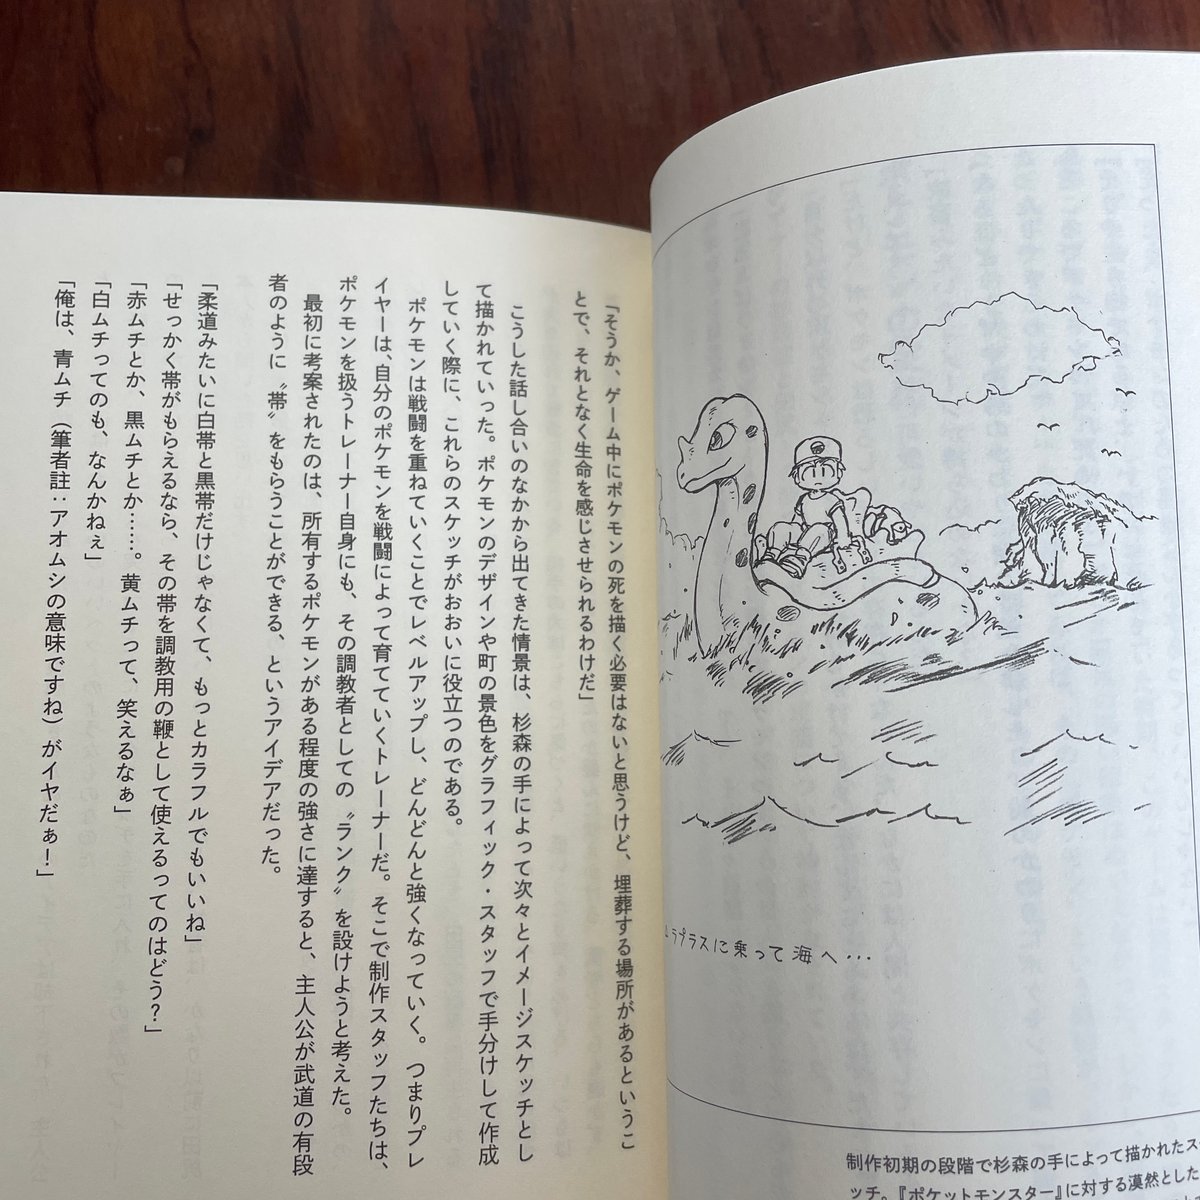 ラプラスに乗って海へ・・・
制作初期の段階で杉森の手によって描かれたス
ッチ。『ポケットモンスター』に対する漠然とした
「そうか、ゲーム中にポケモンの死を描く必要はないと思うけど、埋葬する場所があるというこ
とで、それとなく生命を感じさせられるわけだ」
こうした話し合いのなかから出てきた情景は、杉森の手によって次々とイメージスケッチとし
て描かれていった。ポケモンのデザインや町の景色をグラフィック・スタッフで手分けして作成
していく際に、これらのスケッチがおおいに役立つのである。
ポケモンは戦闘を重ねていくことでレベルアップし、どんどんと強くなっていく。つまりプレ
イヤーは、自分のポケモンを戦闘によって育てていくトレーナーだ。そこで制作スタッフたちは、
ポケモンを扱うトレーナー自身にも、その調教者としての〝ランク〟を設けようと考えた。
最初に考案されたのは、所有するポケモンがある程度の強さに達すると、主人公が武道の有段
者のように〝帯〟をもらうことができる、というアイデアだった。
「柔道みたいに白帯と黒帯だけじゃなくて、もっとカラフルでもいいね」
「せっかく帯がもらえるなら、その帯を調教用の鞭として使えるってのはどう？」
「赤ムチとか、黒ムチとか……。黄ムチって、笑えるなぁ」
「白ムチってのも、なんかねぇ」
「俺は、青ムチ（筆者註：アオムシの意味ですね）がイヤだぁ！」